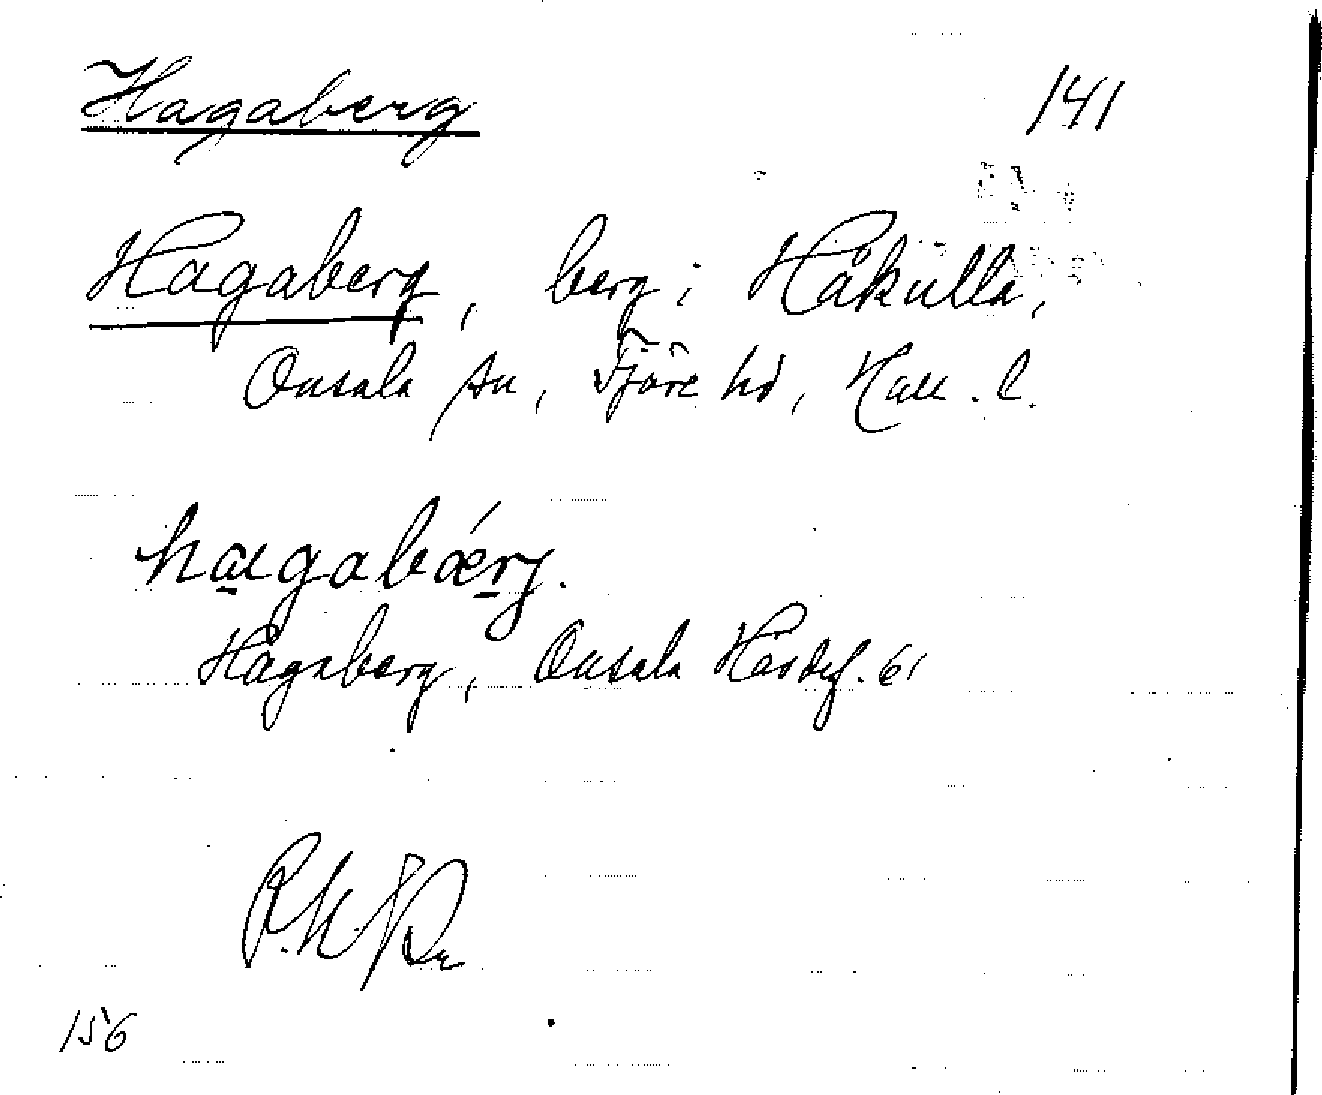 Hagaberg 141
Hagaberg, berg i Håkulla,
Onsala sn, Fjäre hd, Hall. l.
hagabærj.
Hagaberg, Onsala Hävdef. 61
156